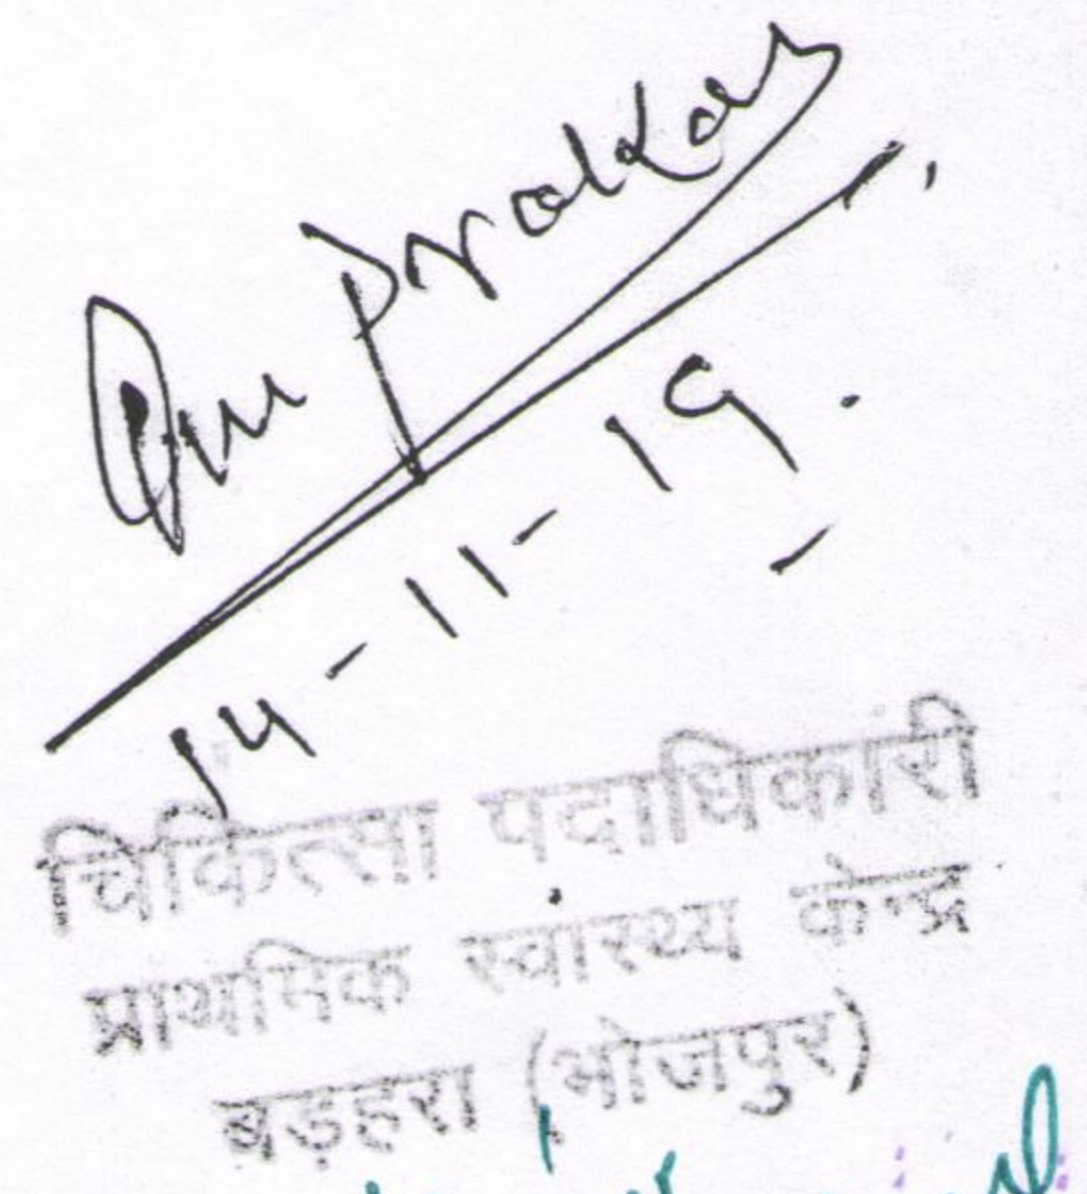 Om Prakash
14-11-19.
चिकित्सा पदाधिकारी
प्राथमिक स्वास्थ्य केन्द्र
बड़हरा (भोजपुर)